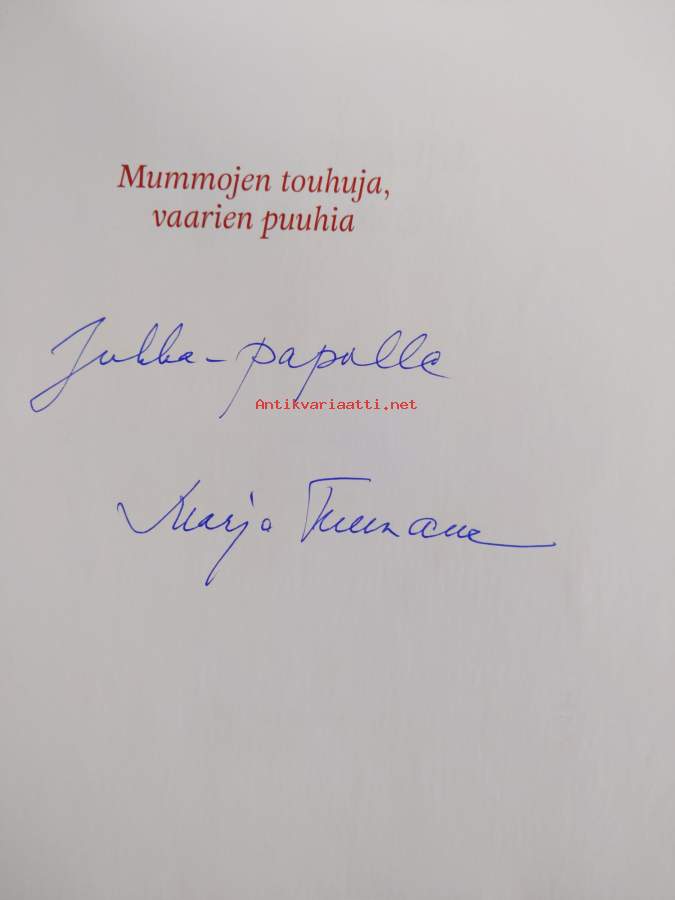 Mummojen touhuja,
vaarien puuhia
Jukka-papalle
Antikvariaatti.net
Marja